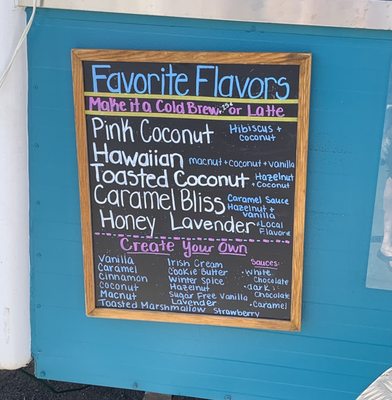 Favorite Flavors
Make it a Cold Brew +.25¢ or Latte
Pink Coconut Hibiscus + coconut
Hawaiian macnut + coconut + vanilla
Toasted Coconut Hazelnut + Coconut
Caramel Bliss Caramel Sauce Hazelnut + vanilla
Honey Lavender Local Flavore
Create Your Own
Vanilla Irish Cream Sauces:
Caramel Cookie Butter • White Chocolate
cinnamon Winter Spice
coconut Hazelnut • dark Chocolate
Macnut Sugar Free Vanilla
Lavender • Caramel
Toasted Marshmallow Strawberry